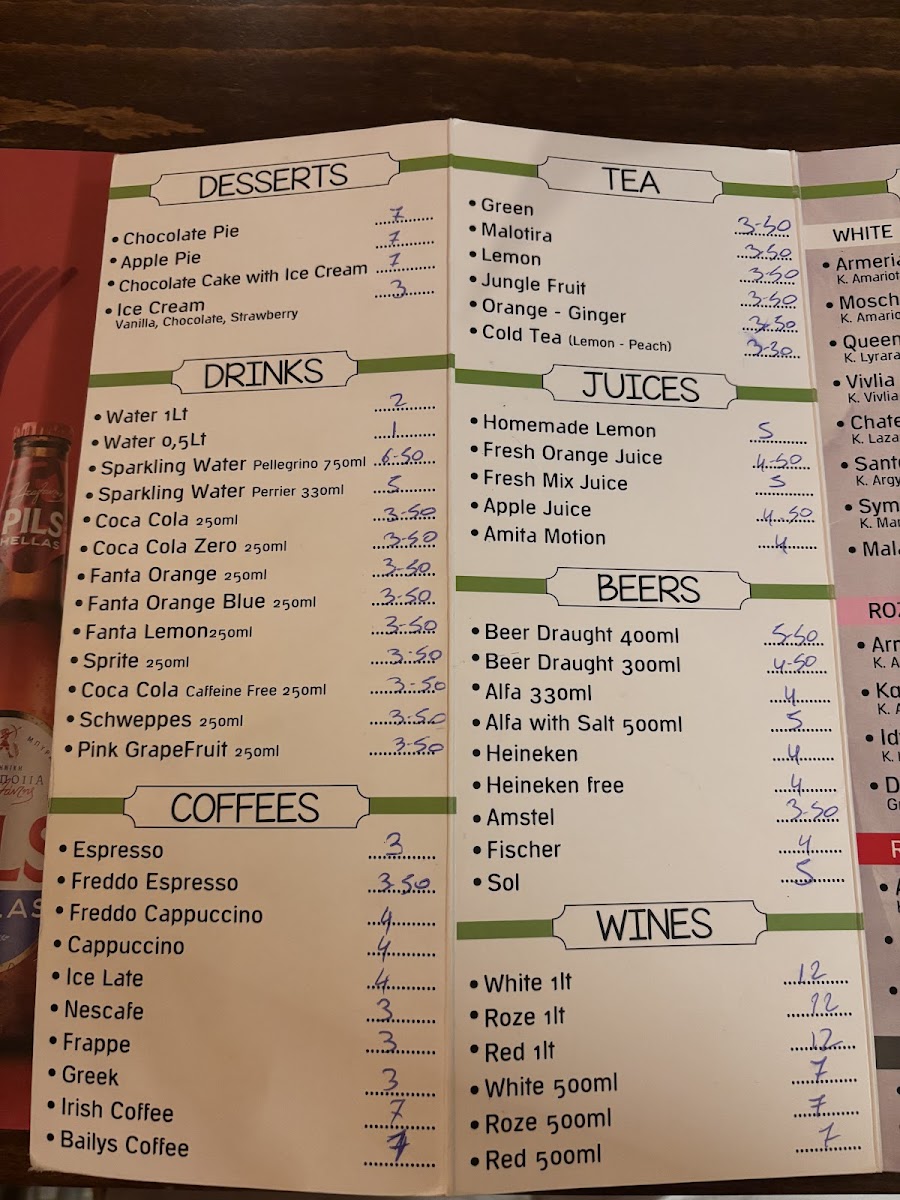 DESSERTS
• Chocolate Pie 7
• Apple Pie 7
• Chocolate Cake with Ice Cream 7
• Ice Cream 3
Vanilla, Chocolate, Strawberry
DRINKS
• Water 1Lt 2
• Water 0,5Lt 1
• Sparkling Water Pellegrino 750ml 6-50
• Sparkling Water Perrier 330ml 5
• Coca Cola 250ml 3-50
• Coca Cola Zero 250ml 3-50
• Fanta Orange 250ml 3-50
• Fanta Orange Blue 250ml 3-50
• Fanta Lemon250ml 3-50
• Sprite 250ml 3-50
• Coca Cola Caffeine Free 250ml 3-50
• Schweppes 250ml 3-50
• Pink GrapeFruit 250ml 3-50
COFFEES
• Espresso 3
• Freddo Espresso 3-50
• Freddo Cappuccino 4
• Cappuccino 4
• Ice Late 4
• Nescafe 3
• Frappe 3
• Greek 3
• Irish Coffee 7
• Bailys Coffee 7
TEA
• Green 3-50
• Malotira 3-50
• Lemon 3-50
• Jungle Fruit 3-50
• Orange - Ginger 3-50
• Cold Tea (Lemon - Peach) 3-30
JUICES
• Homemade Lemon 5
• Fresh Orange Juice 4-50
• Fresh Mix Juice 5
• Apple Juice 4-50
• Amita Motion 4
BEERS
• Beer Draught 400ml 5-50
• Beer Draught 300ml 4-50
• Alfa 330ml 4
• Alfa with Salt 500ml 5
• Heineken 4
• Heineken free 4
• Amstel 3-50
• Fischer 4
• Sol 5
WINES
• White 1lt 12
• Roze 1lt 12
• Red 1lt 12
• White 500ml 7
• Roze 500ml 7
• Red 500ml 7
WHITE
• Armeria
K. Amariot
• Mosch
K. Amario
• Queen
K. Lyrara
• Vivlia
K. Vivlia
• Chate
K. Laza
• Sant
K. Argy
• Sym
K. Mar
• Mala
ROZ
• Arm
K. A
• Ka
K. A
• Id
K.
• D
G
R
PILS
HELLAS